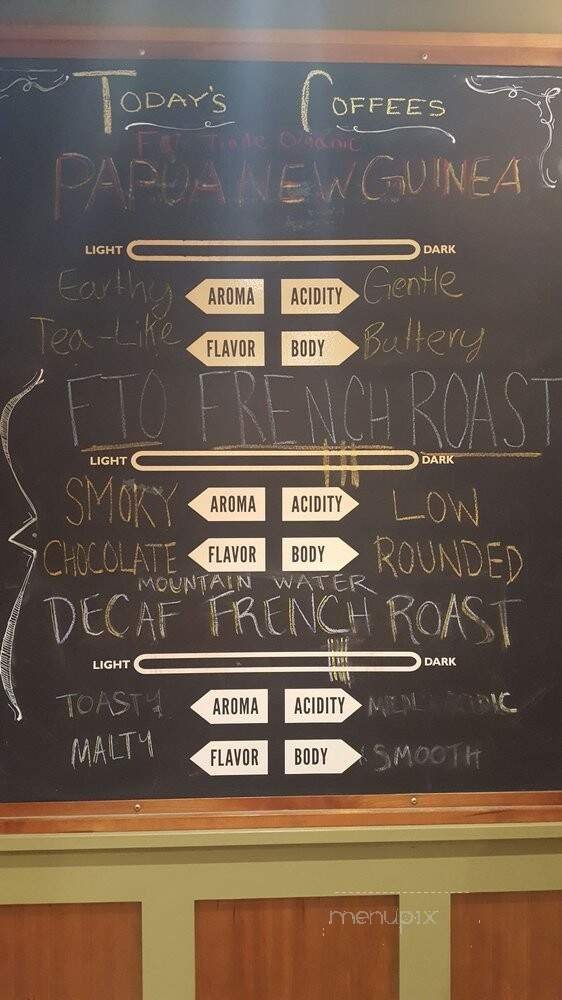 TODAY'S COFFEES
Fair Trade Organic
PAPUA NEW GUINEA
LIGHT DARK
Earthy AROMA ACIDITY Gentle
Tea-Like FLAVOR BODY Buttery
FTO FRENCH ROAST
LIGHT DARK
SMOKY AROMA ACIDITY LOW
CHOCOLATE FLAVOR BODY ROUNDED
MOUNTAIN WATER
DECAF FRENCH ROAST
LIGHT DARK
TOASTY AROMA ACIDITY
MALTY FLAVOR BODY SMOOTH
menupix